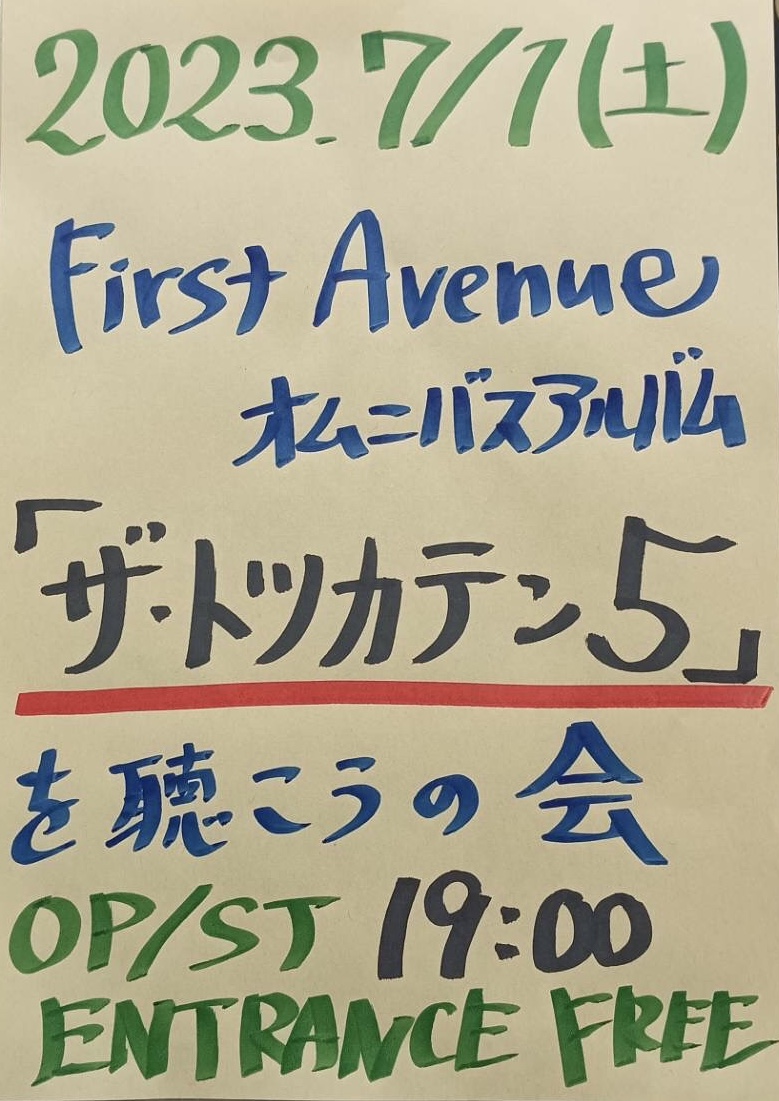 2023.7/1(土)
First Avenue
オムニバスアルバム
「ザ・トツカテン5」
を聴こうの会
OP/ST 19:00
ENTRANCE FREE